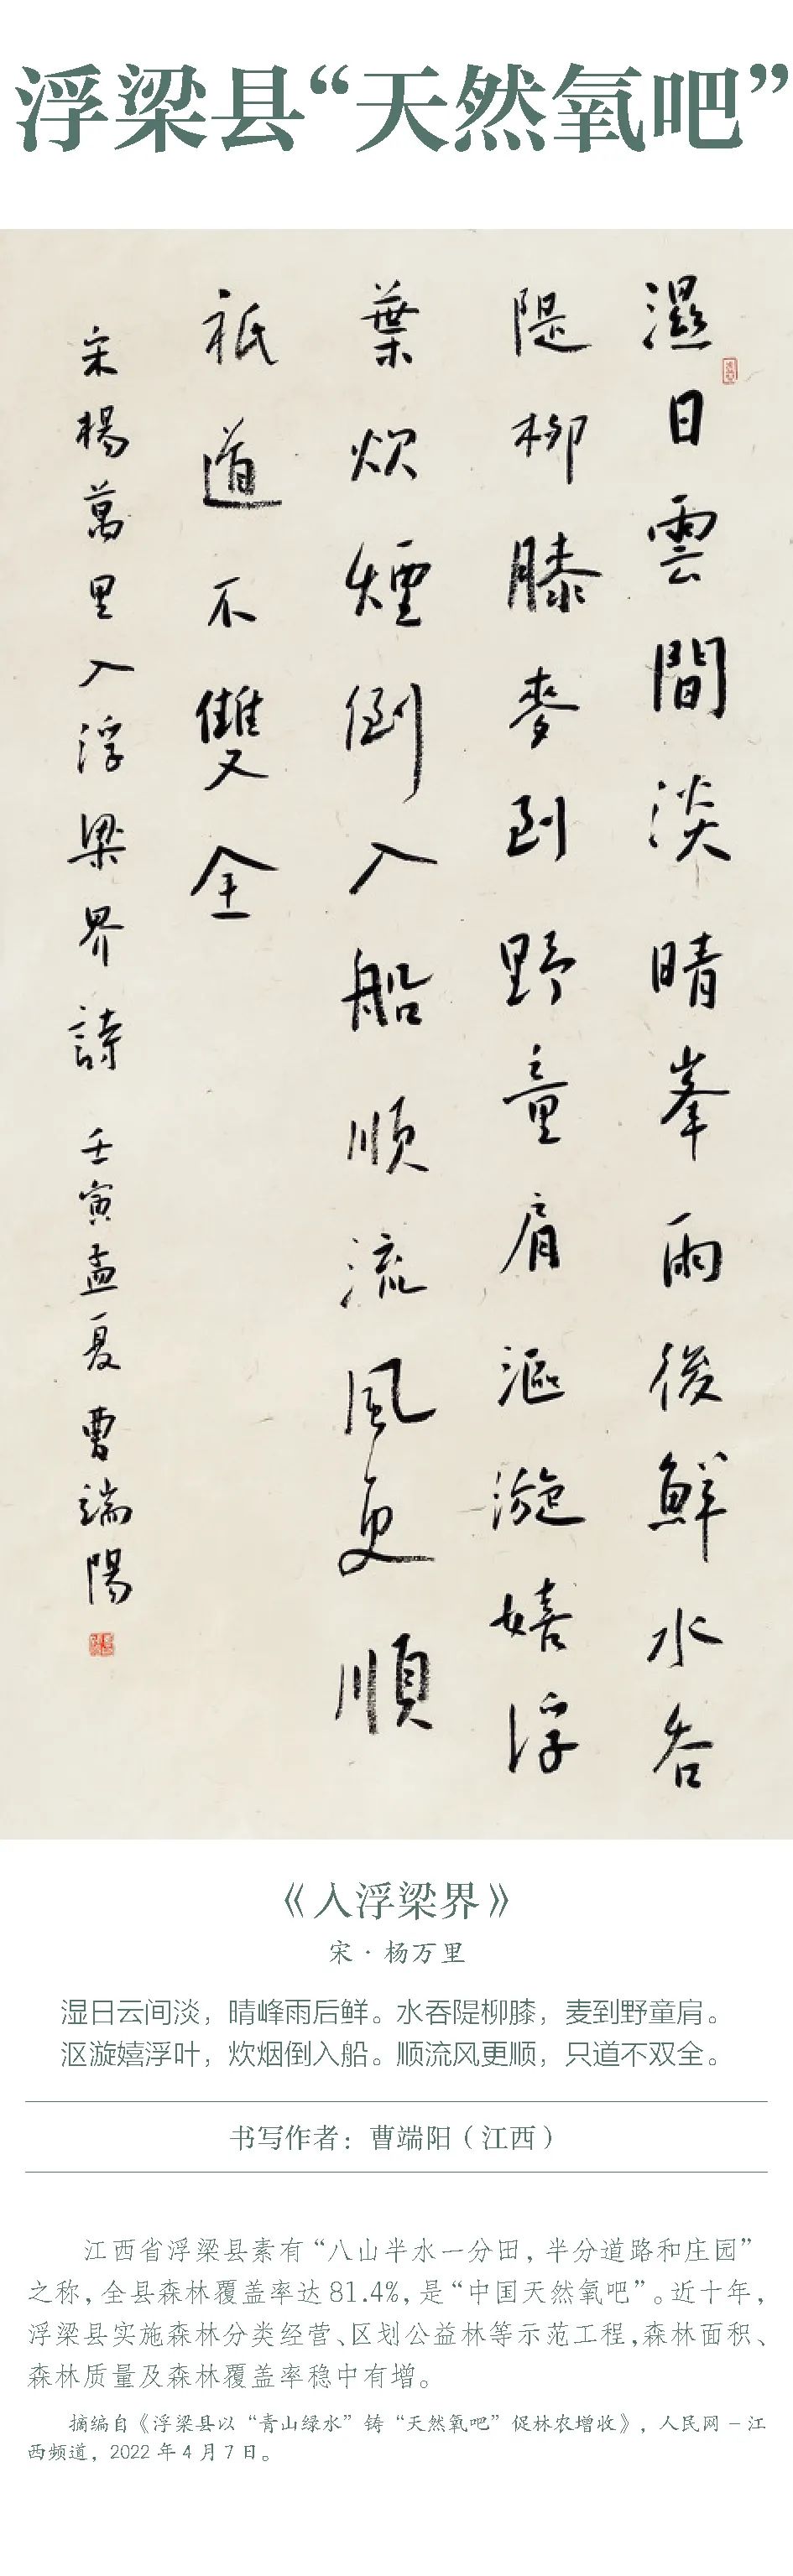 浮梁县“天然氧吧”
濕日雲間淡晴峯雨後鮮水吞
隄柳膝麥到野童肩漚漩嬉浮
葉炊煙倒入船順流風更順
祇道不雙全
宋楊萬里入浮梁界詩 壬寅孟夏 曹端陽
《入浮梁界》
宋·杨万里
湿日云间淡，晴峰雨后鲜。水吞隄柳膝，麦到野童肩。
沤漩嬉浮叶，炊烟倒入船。顺流风更顺，只道不双全。
书写作者：曹端阳（江西）
江西省浮梁县素有“八山半水一分田，半分道路和庄园”
之称，全县森林覆盖率达81.4%，是“中国天然氧吧”。近十年，
浮梁县实施森林分类经营、区划公益林等示范工程，森林面积、
森林质量及森林覆盖率稳中有增。
摘编自《浮梁县以“青山绿水”铸“天然氧吧”促林农增收》，人民网－江
西频道，2022年4月7日。